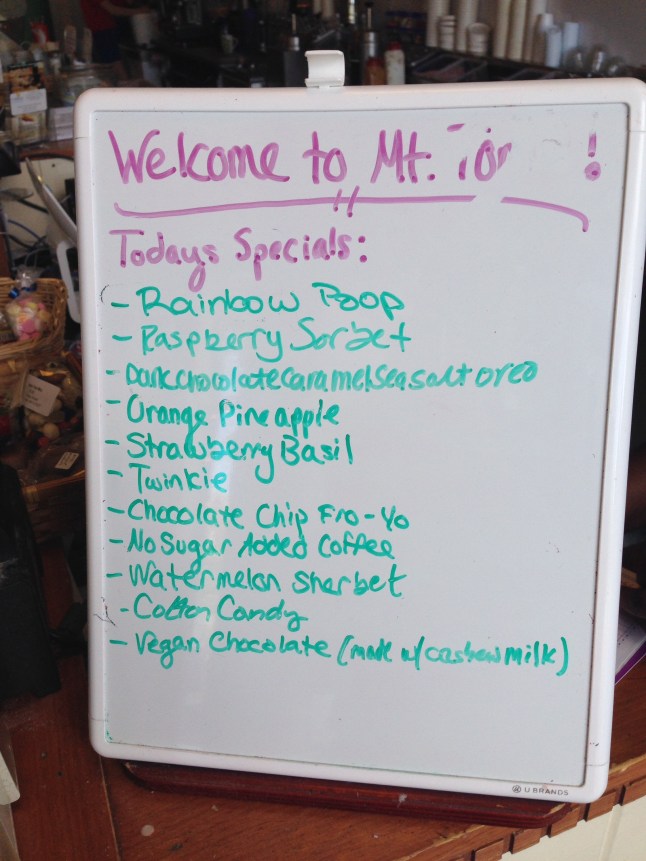 Welcome to Mt. !
Todays Specials:
- Rainbow Poop
- Raspberry Sorbet
- Dark chocolate caramel sea salt oreo
- Orange Pineapple
- Strawberry Basil
- Twinkie
- Chocolate Chip Fro-Yo
- No Sugar Added Coffee
- Watermelon Sherbet
- Cotton Candy
- Vegan Chocolate (made w/ cashew milk)
U BRANDS